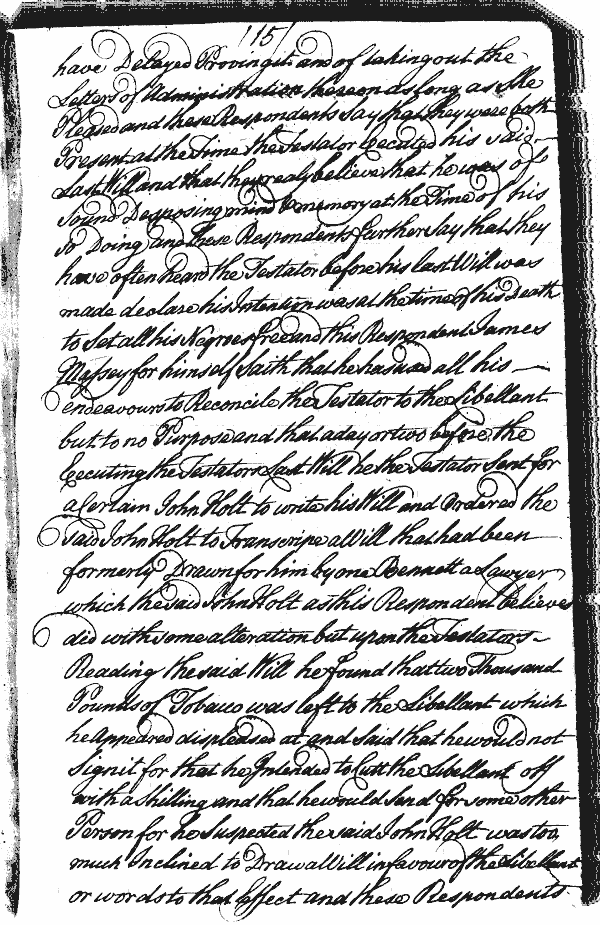 115/
have Delayed Proving it and of taking out the
Letters of Administration thereon as long as She
Pleased and these Respondents Say that they were both
Present at the Time the Testator Executed his said
Last Will and that they realy believe that he was of
Sound Deaposing mind & memory at the Time of his
So Doing and these Respondents further Say that they
have often heard the Testator before his last Will was
made declare his Intention was at the time of his Death
to Set all his Negroes free and this Respondent James
Massey for himself Saith that he has used all his
endeavours to Reconcile the Testator to the Libellant
but to no Purpose and that a day or two before the
Executing the Testators Last Will he the Testator Sent for
a Certain John Holt to write his Will and Ordered the
said John Holt to Transcripe a Will that had been
formerly Drawn for him by one Bennett a Lawyer
which the said John Holt as this Respondent believes
did with some alteration but upon the Testators
Reading the said Will he found that two Thousand
Pounds of Tobacco was left to the Libellant which
he Appeared displeased at and Said that he would not
Sign it for that he Intended to Cutt the Libellant off
with a Shilling and that he would Send for some other
Person for he Suspected the said John Holt was too
much Inclined to Draw a Will in favour of the Libellant
or words to that Effect and these Respondents